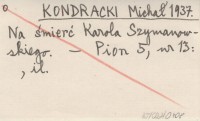 o KONDRACKI Michał 1937.
Na śmierć Karola Szymanow-
skiego. — Pion 5, nr 13:
, il.